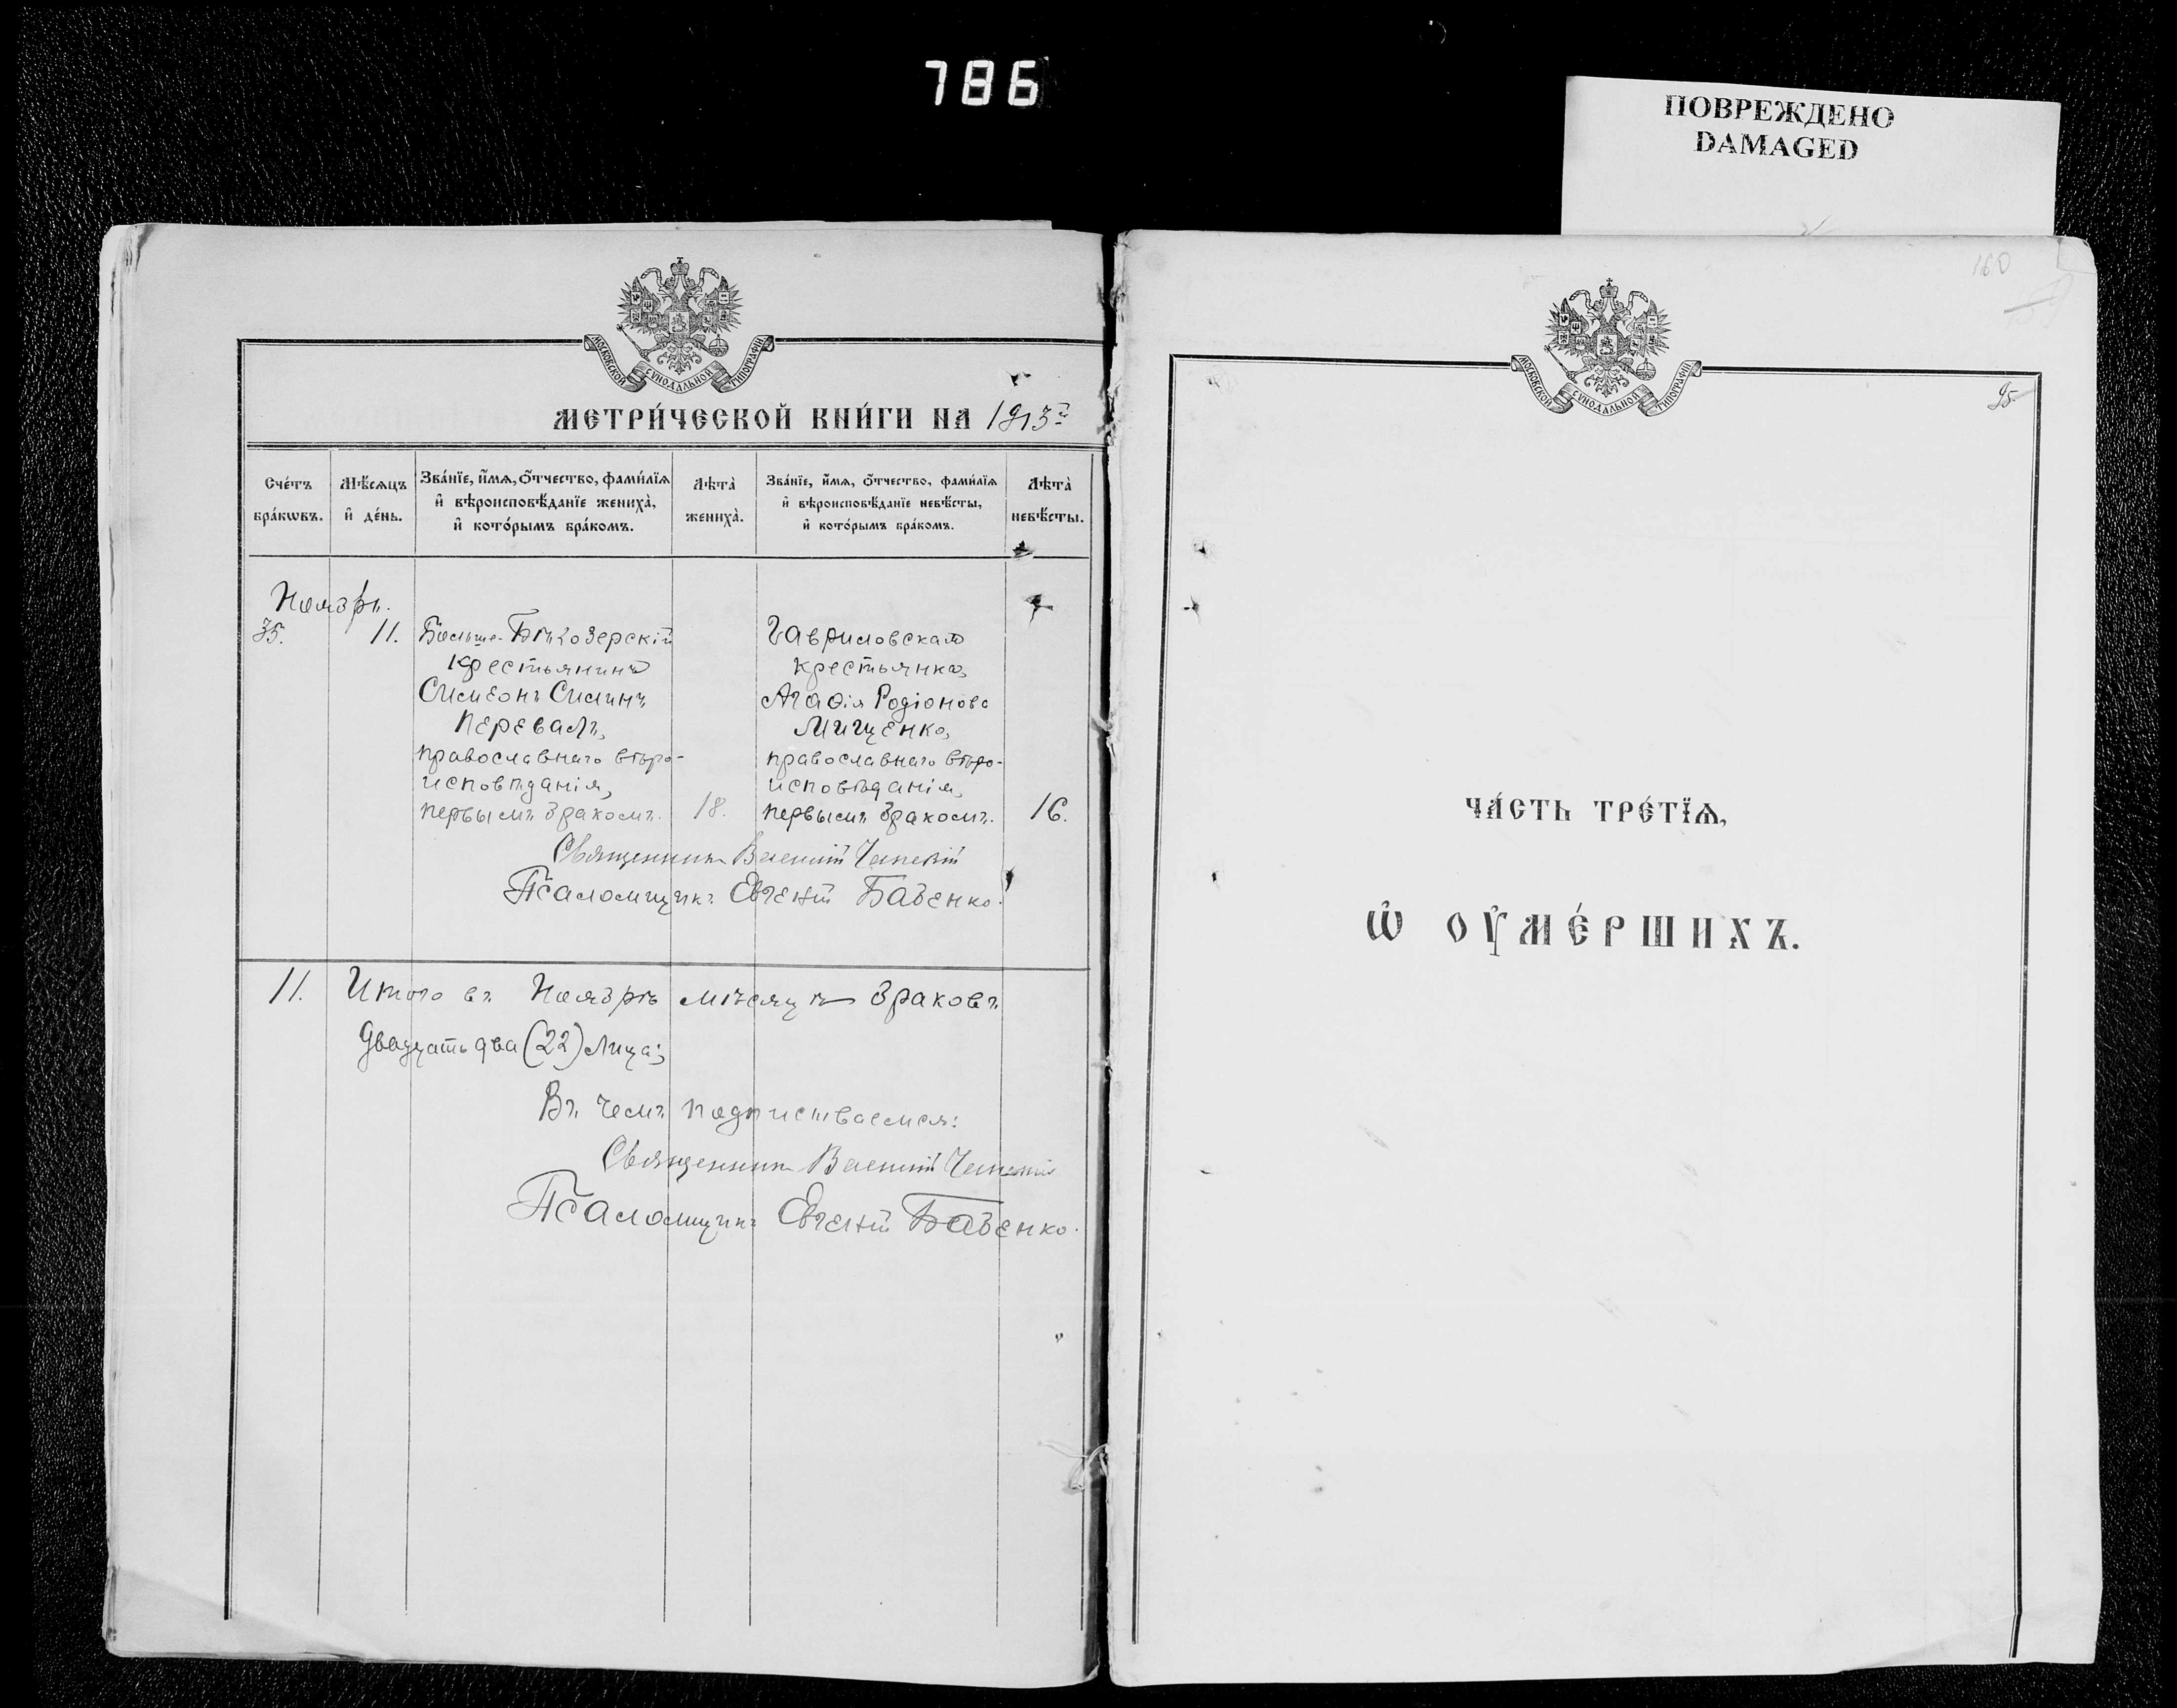 786
ПОВРЕЖДЕНО
DAMAGED
160
МОСКОВСКОЙ СѴНОДАЛЬНОЙ ТИПОГРАФІИ
МЕТРИ́ЧЕСКОЙ КНИ́ГИ НА 1913 г.
Сче́тъ бра́кѡвъ.
Мѣ́сяцъ и҆ де́нь.
Зва́нїе, и҆́мя, ѻ҆́тчество, фами́лїя и҆ вѣроисповѣ́данїе жениха̀, и҆ кото́рымъ бра́комъ.
Лѣта̀ жениха̀.
Зва́нїе, и҆́мя, ѻ҆́тчество, фами́лїя и҆ вѣроисповѣ́данїе невѣ́сты, и҆ кото́рымъ бра́комъ.
Лѣта̀ невѣ́сты.
Ноябрь.
35.
11.
Больше-Бѣлозерскій
крестьянинъ
Симеонъ Симинъ
Перевалъ,
православнаго вѣро-
исповѣданія,
первымъ бракомъ.
18.
Гавриловская
крестьянка
Агаѳія Родіонова
Мищенко,
православнаго вѣро-
исповѣданія,
первымъ бракомъ.
16.
Священникъ Василій
Псаломщикъ Евгеній Бабенко.
11. Итого въ Ноябрѣ мѣсяцѣ браковъ
двадцать два (22) лица;
Въ чемъ подписываемся:
Священникъ Василій
Псаломщикъ Евгеній Бабенко.
МОСКОВСКОЙ СѴНОДАЛЬНОЙ ТИПОГРАФІИ
95.
ЧА́СТЬ ТРЕ́ТЇѦ,
Ѡ҆ ОУ҆МЕ́РШИХЪ.